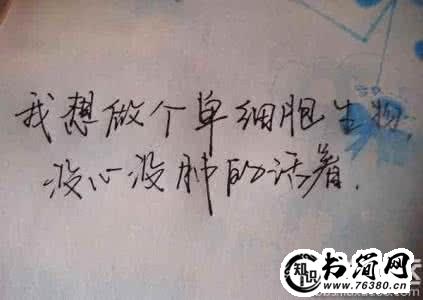 我想做个单细胞生物,
没心没肺的活着.
知识
书简网
www.76380.cn